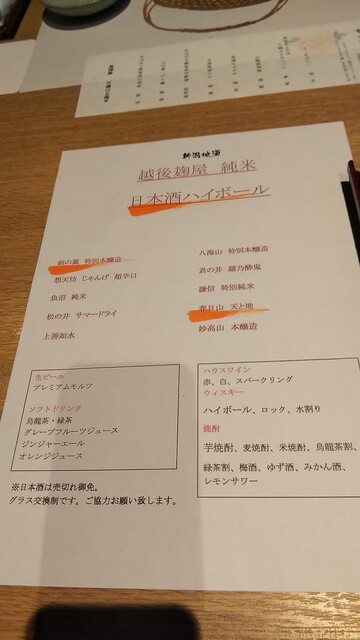 新潟地酒
越後麹屋 純米
日本酒ハイボール
朝の翼 特別本醸造
想天坊 じゃんげ 超辛口
魚沼 純米
松の井 サマードライ
上善如水
八海山 特別本醸造
君の井 越乃酔鬼
謙信 特別純米
春日山 天と地
妙高山 本醸造
生ビール
プレミアムモルツ
ソフトドリンク
烏龍茶・緑茶
グレープフルーツジュース
ジンジャーエール
オレンジジュース
ハウスワイン
赤、白、スパークリング
ウィスキー
ハイボール、ロック、水割り
焼酎
芋焼酎、麦焼酎、米焼酎、烏龍茶割、
緑茶割、梅酒、ゆず酒、みかん酒、
レモンサワー
※日本酒は売切れ御免。
グラス交換制です。ご協力お願い致します。